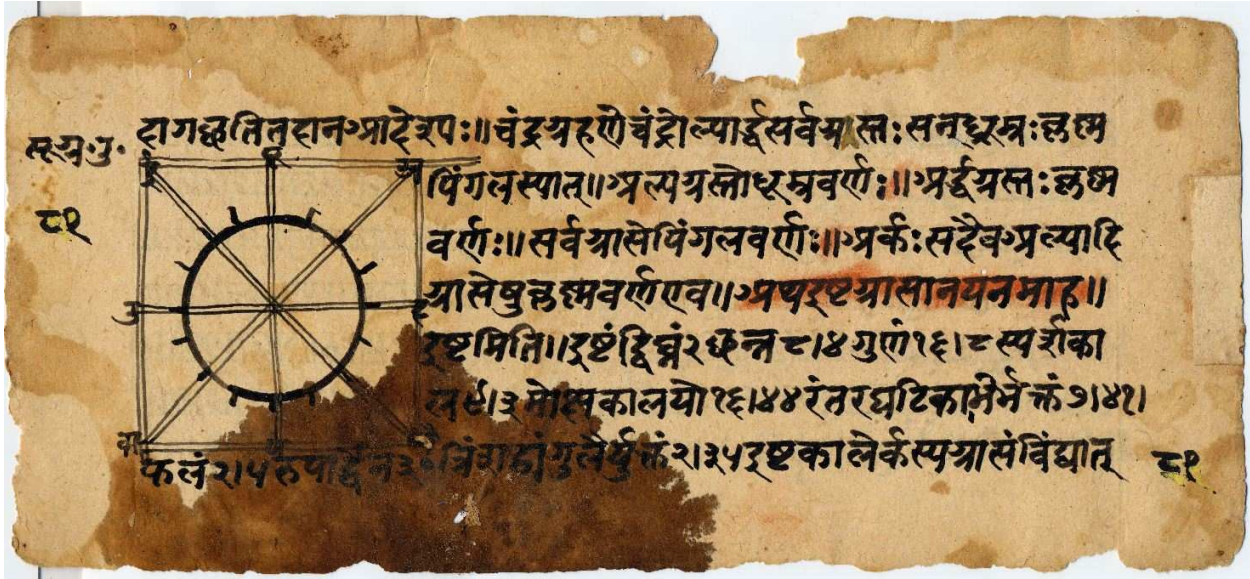 सू.ग्र.पु.
हागछतितत्रहानआदेशपः॥चंद्रग्रहणेचंद्रोल्पार्द्धसर्वग्रास्तःसनधूम्रःकृष्ण
पिंगलस्यात्॥अल्पग्रस्तोधूम्रवर्णः॥अर्द्धग्रस्तःकृष्ण
८१
वर्णः॥सर्वग्रासेपिंगलवर्णः॥अर्कःसदैवअल्पादि
ग्रासेषुकृष्णवर्णएव॥अथइष्टग्रासानयनमाह॥
इष्टमिति॥इष्टंद्विघ्नं२छन्न८।४गुणं१६।८स्पर्शका
ल९।३मोक्षकालयो१६।४४रंतरघटिकाभिर्भक्तं७।४१।
फलं२।५रुपार्द्धेन३०त्रिंशतांगुलैर्युक्तं२।३५इष्टकालेर्कस्यग्रासंविंद्यात्
८१